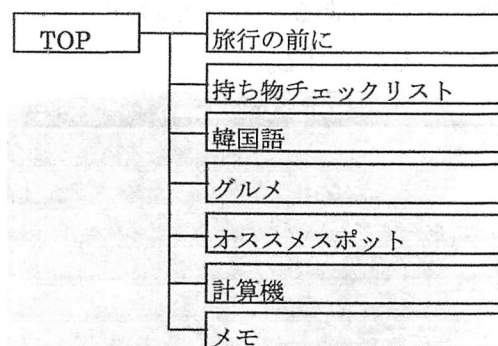 TOP
旅行の前に
持ち物チェックリスト
韓国語
グルメ
オススメスポット
計算機
メモ